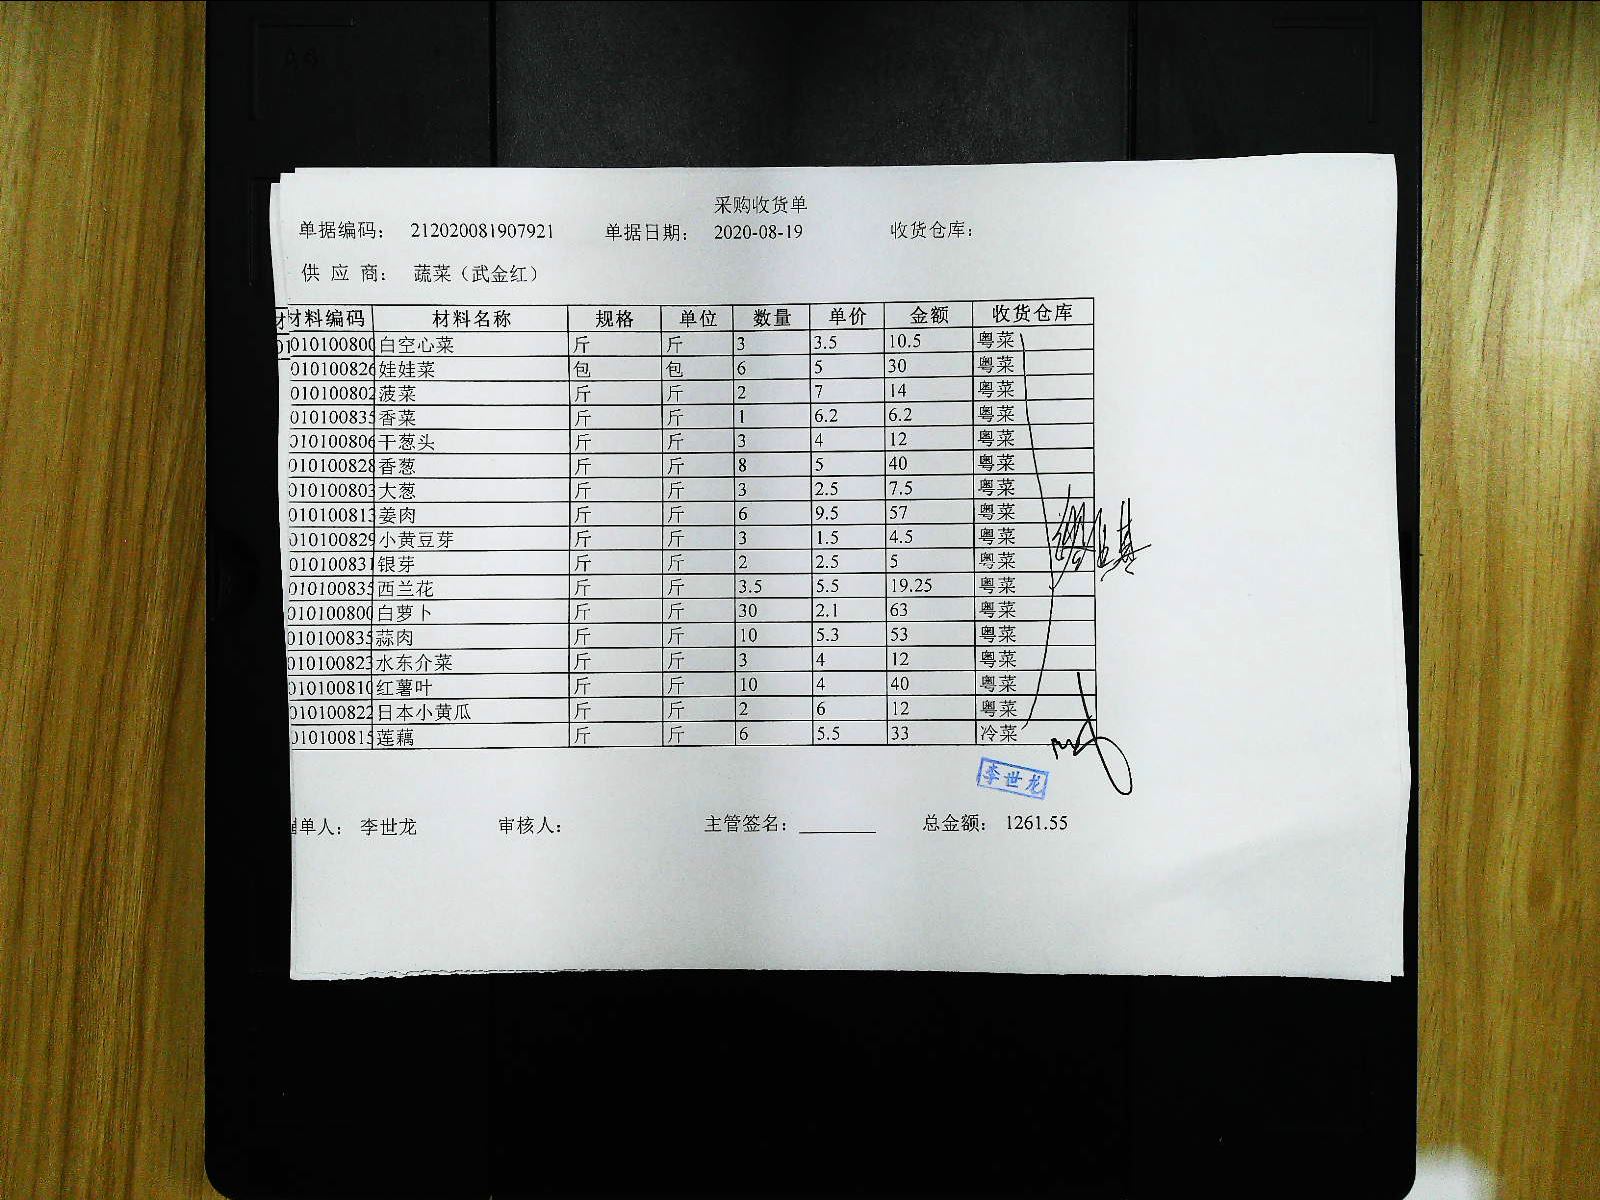 采购收货单
单据编码： 212020081907921 单据日期： 2020-08-19 收货仓库：
供 应 商： 蔬菜（武金红）
材料编码 材料名称 规格 单位 数量 单价 金额 收货仓库
010100800 白空心菜 斤 斤 3 3.5 10.5 粤菜
010100826 娃娃菜 包 包 6 5 30 粤菜
010100802 菠菜 斤 斤 2 7 14 粤菜
010100835 香菜 斤 斤 1 6.2 6.2 粤菜
010100806 干葱头 斤 斤 3 4 12 粤菜
010100828 香葱 斤 斤 8 5 40 粤菜
010100803 大葱 斤 斤 3 2.5 7.5 粤菜
010100813 姜肉 斤 斤 6 9.5 57 粤菜
010100829 小黄豆芽 斤 斤 3 1.5 4.5 粤菜
010100831 银芽 斤 斤 2 2.5 5 粤菜
010100835 西兰花 斤 斤 3.5 5.5 19.25 粤菜
010100800 白萝卜 斤 斤 30 2.1 63 粤菜
010100835 蒜肉 斤 斤 10 5.3 53 粤菜
010100823 水东介菜 斤 斤 3 4 12 粤菜
010100810 红薯叶 斤 斤 10 4 40 粤菜
010100822 日本小黄瓜 斤 斤 2 6 12 粤菜
010100815 莲藕 斤 斤 6 5.5 33 冷菜
李世龙
单人： 李世龙 审核人： 主管签名： 总金额： 1261.55